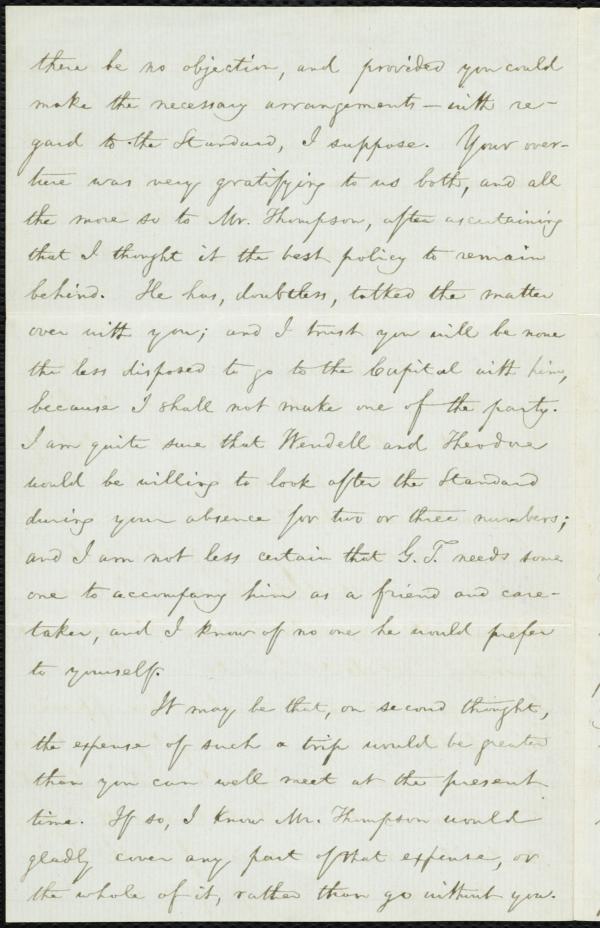 there be no objection, and provided you could
make the necessary arrangements — with re-
gard to the Standard, I suppose. Your over-
ture was very gratifying to us both, and all
the more so to Mr. Thompson, after ascertaining
that I thought it the best policy to remain
behind. He has, doubtless, talked the matter
over with you; and I trust you will be none
the less disposed to go to the Capital with him,
because I shall not make one of the party.
I am quite sure that Wendell and Theodore
would be willing to look after the Standard
during your absence for two or three numbers;
and I am not less certain that G. T. needs some
one to accompany him as a friend and care-
taker, and I know of no one he would prefer
to yourself.
It may be that, on second thought,
the expense of such a trip would be greater
than you can well meet at the present
time. If so, I know Mr. Thompson would
gladly cover any part of that expense, or
the whole of it, rather than go without you.